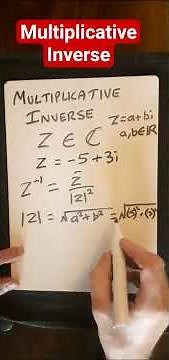 Multiplicative
Inverse
MULTIPLICATIVE
INVERSE
z = a+bi
z ∈ ℂ
a,b∈ℝ
z = -5+3i
z⁻¹ = z̄ / |z|²
|z| = √a²+b² = √(-5)²+(3)²